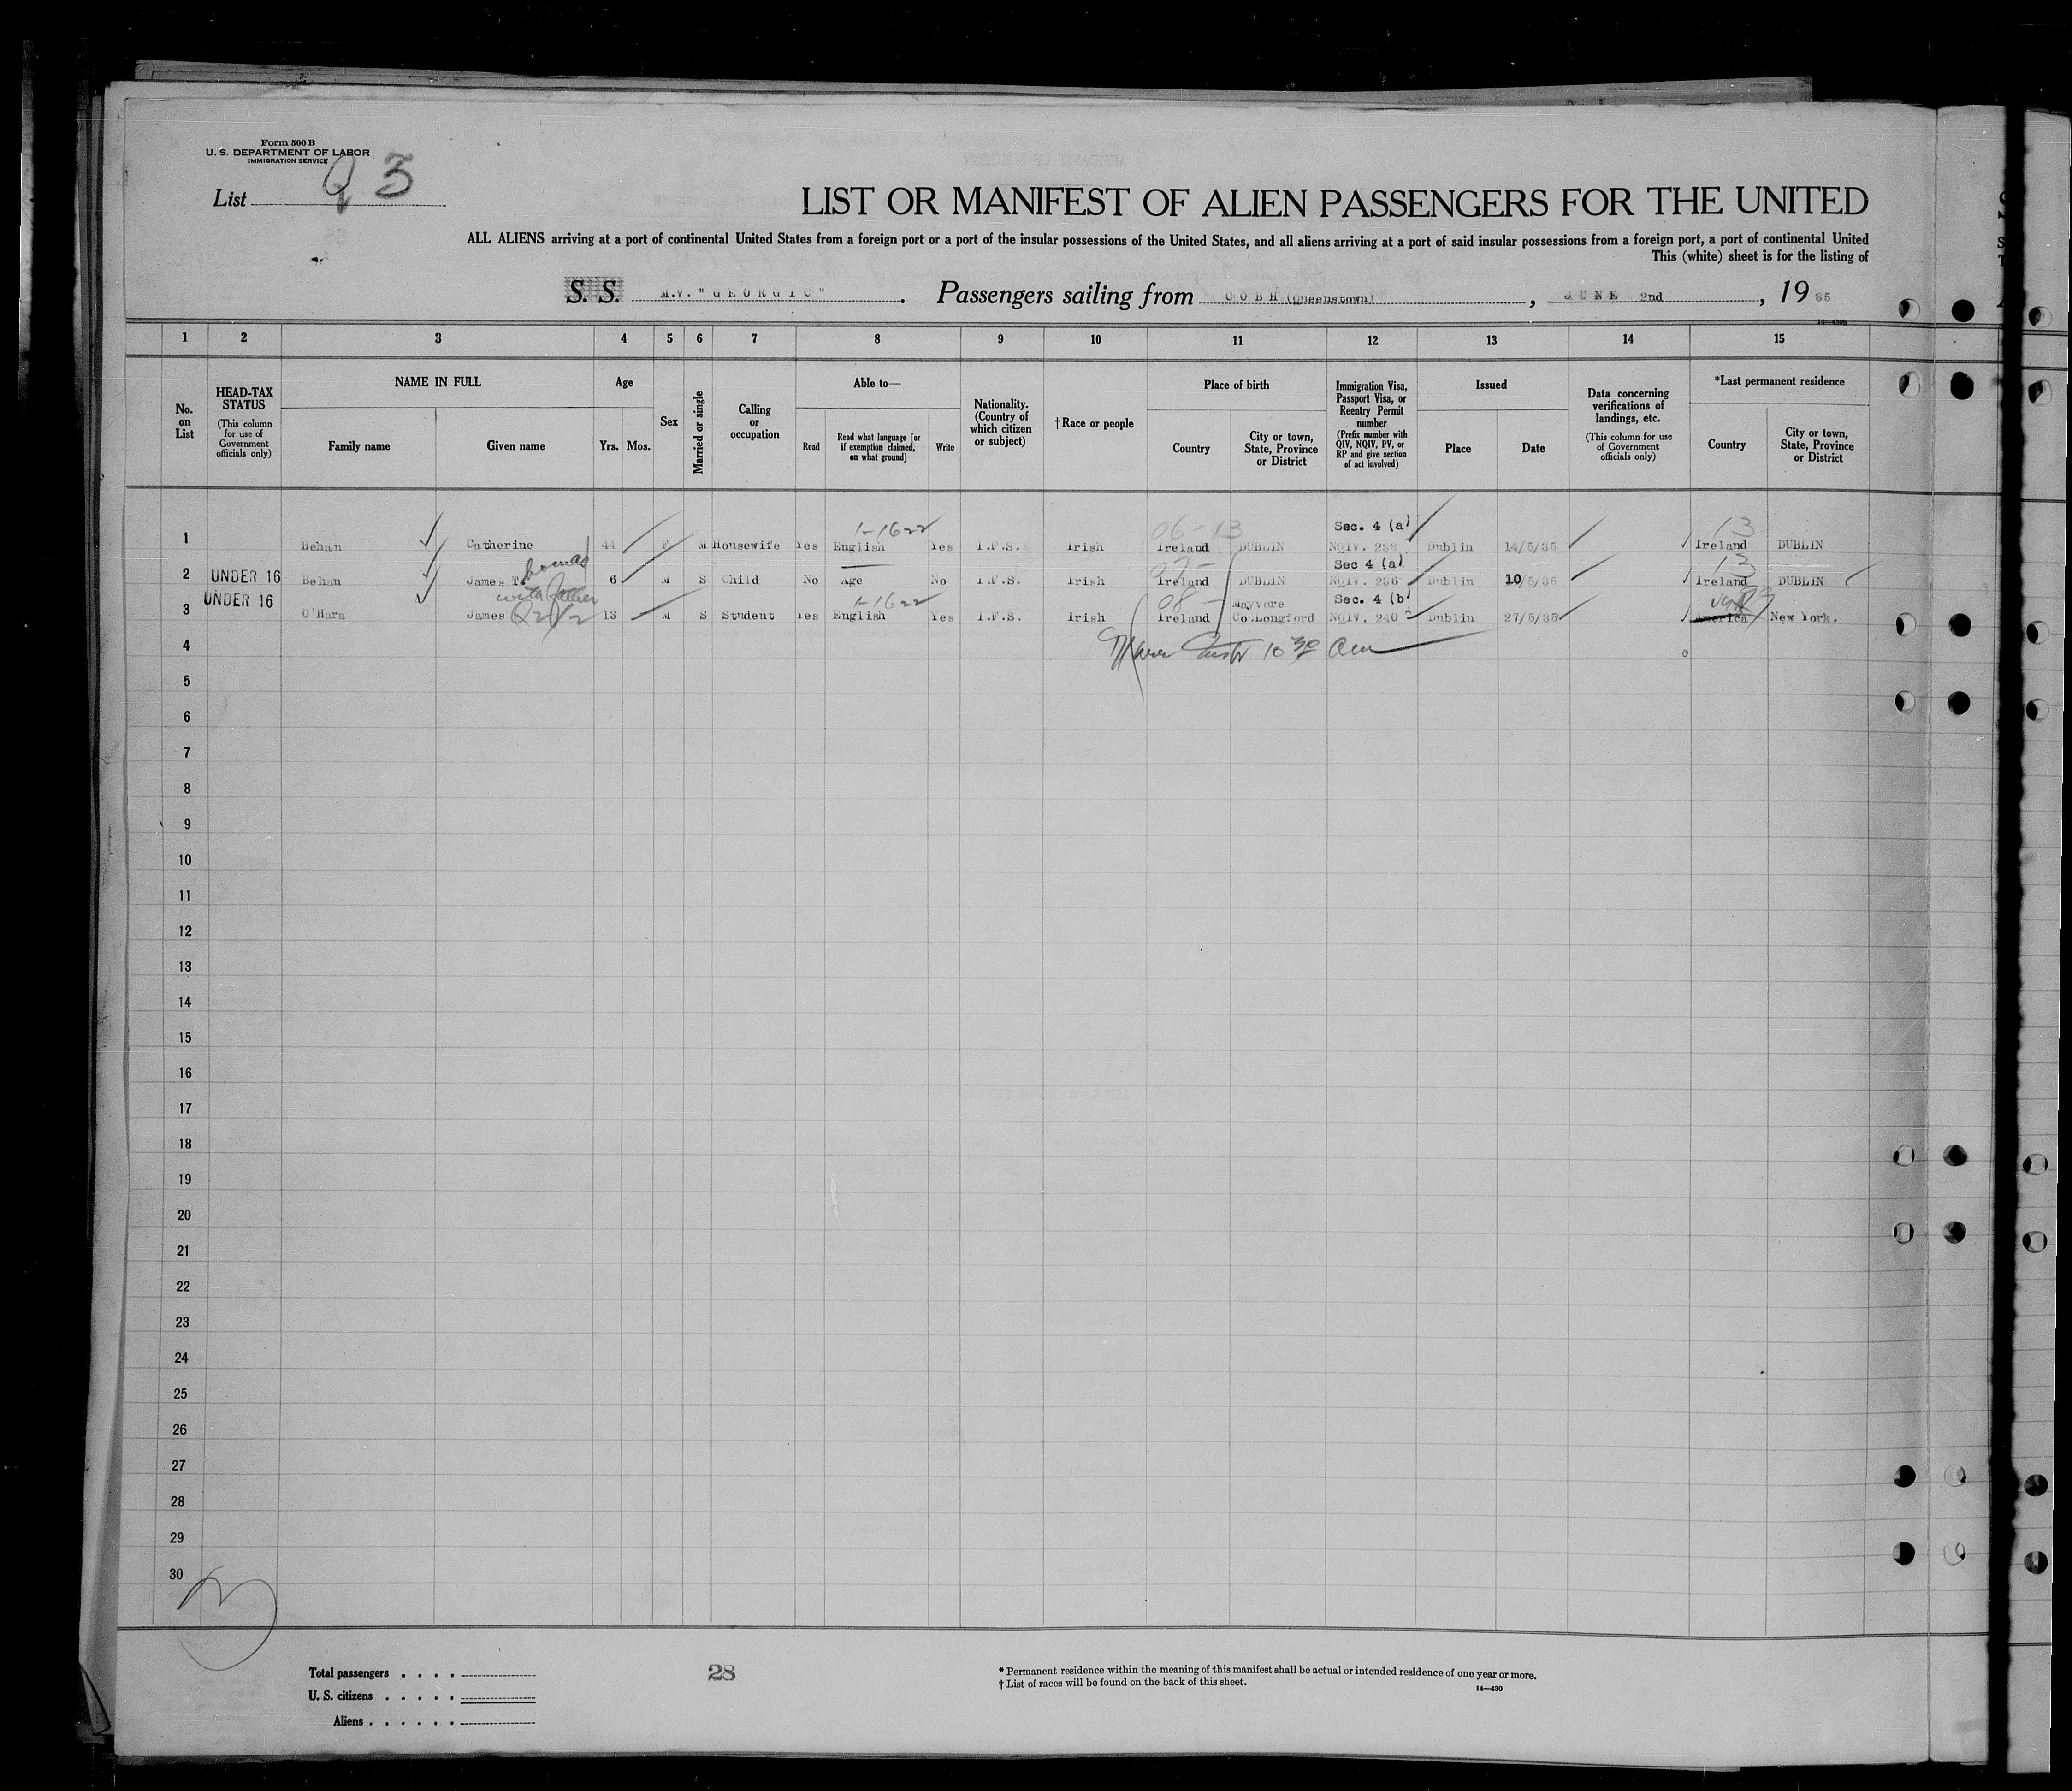 Form 500 B
U. S. DEPARTMENT OF LABOR
IMMIGRATION SERVICE
List 3
LIST OR MANIFEST OF ALIEN PASSENGERS FOR THE UNITED
ALL ALIENS arriving at a port of continental United States from a foreign port or a port of the insular possessions of the United States, and all aliens arriving at a port of said insular possessions from a foreign port, a port of continental United
This (white) sheet is for the listing of
S. S. M.V. "GEORGIC". Passengers sailing from COBH (Queenstown), JUNE 2nd, 19 35
1 2 3 4 5 6 7 8 9 10 11 12 13 14 15
No. on List
HEAD-TAX STATUS (This column for use of Government officials only)
NAME IN FULL
Family name
Given name
Age
Yrs. Mos.
Sex
Married or single
Calling or occupation
Able to—
Read
Read what language [or if exemption claimed, on what ground]
Write
Nationality. (Country of which citizen or subject)
†Race or people
Place of birth
Country
City or town, State, Province or District
Immigration Visa, Passport Visa, or Reentry Permit number (Prefix number with QIV, NQIV, PV, or RP and give section of act involved)
Issued
Place
Date
Data concerning verifications of landings, etc. (This column for use of Government officials only)
*Last permanent residence
Country
City or town, State, Province or District
1-1622 06-13 Sec. 4 (a) 13
1 Behan Catherine 44 F M Housewife Yes English Yes I.F.S. Irish Ireland DUBLIN NQIV. Dublin 14/5/35 Ireland DUBLIN
homas 07- Sec 4 (a) 13
2 UNDER 16 Behan James T. 6 M S Child No Age No I.F.S. Irish Ireland DUBLIN NQIV. 236 Dublin 10/5/35 Ireland DUBLIN
with father 1-1622 08- Sec. 4 (b)
3 UNDER 16 O'Hara James 13 M S Student Yes English Yes I.F.S. Irish Ireland Co.Longford NQIV. 240 Dublin 27/5/35 America New York.
4 10 30 am
5
6
7
8
9
10
11
12
13
14
15
16
17
18
19
20
21
22
23
24
25
26
27
28
29
30
Total passengers
U. S. citizens
Aliens
28
* Permanent residence within the meaning of this manifest shall be actual or intended residence of one year or more.
† List of races will be found on the back of this sheet.
14—430